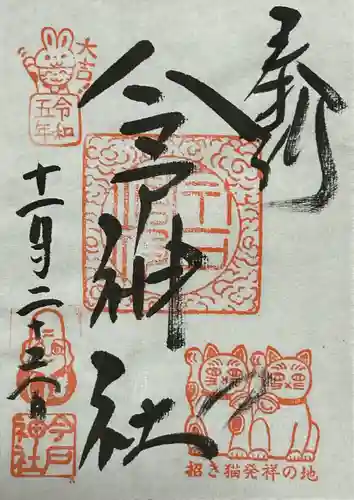 奉拝
今戸神社
大吉
令和
五年
十一月二十二日
今戸
神社
招き猫発祥の地